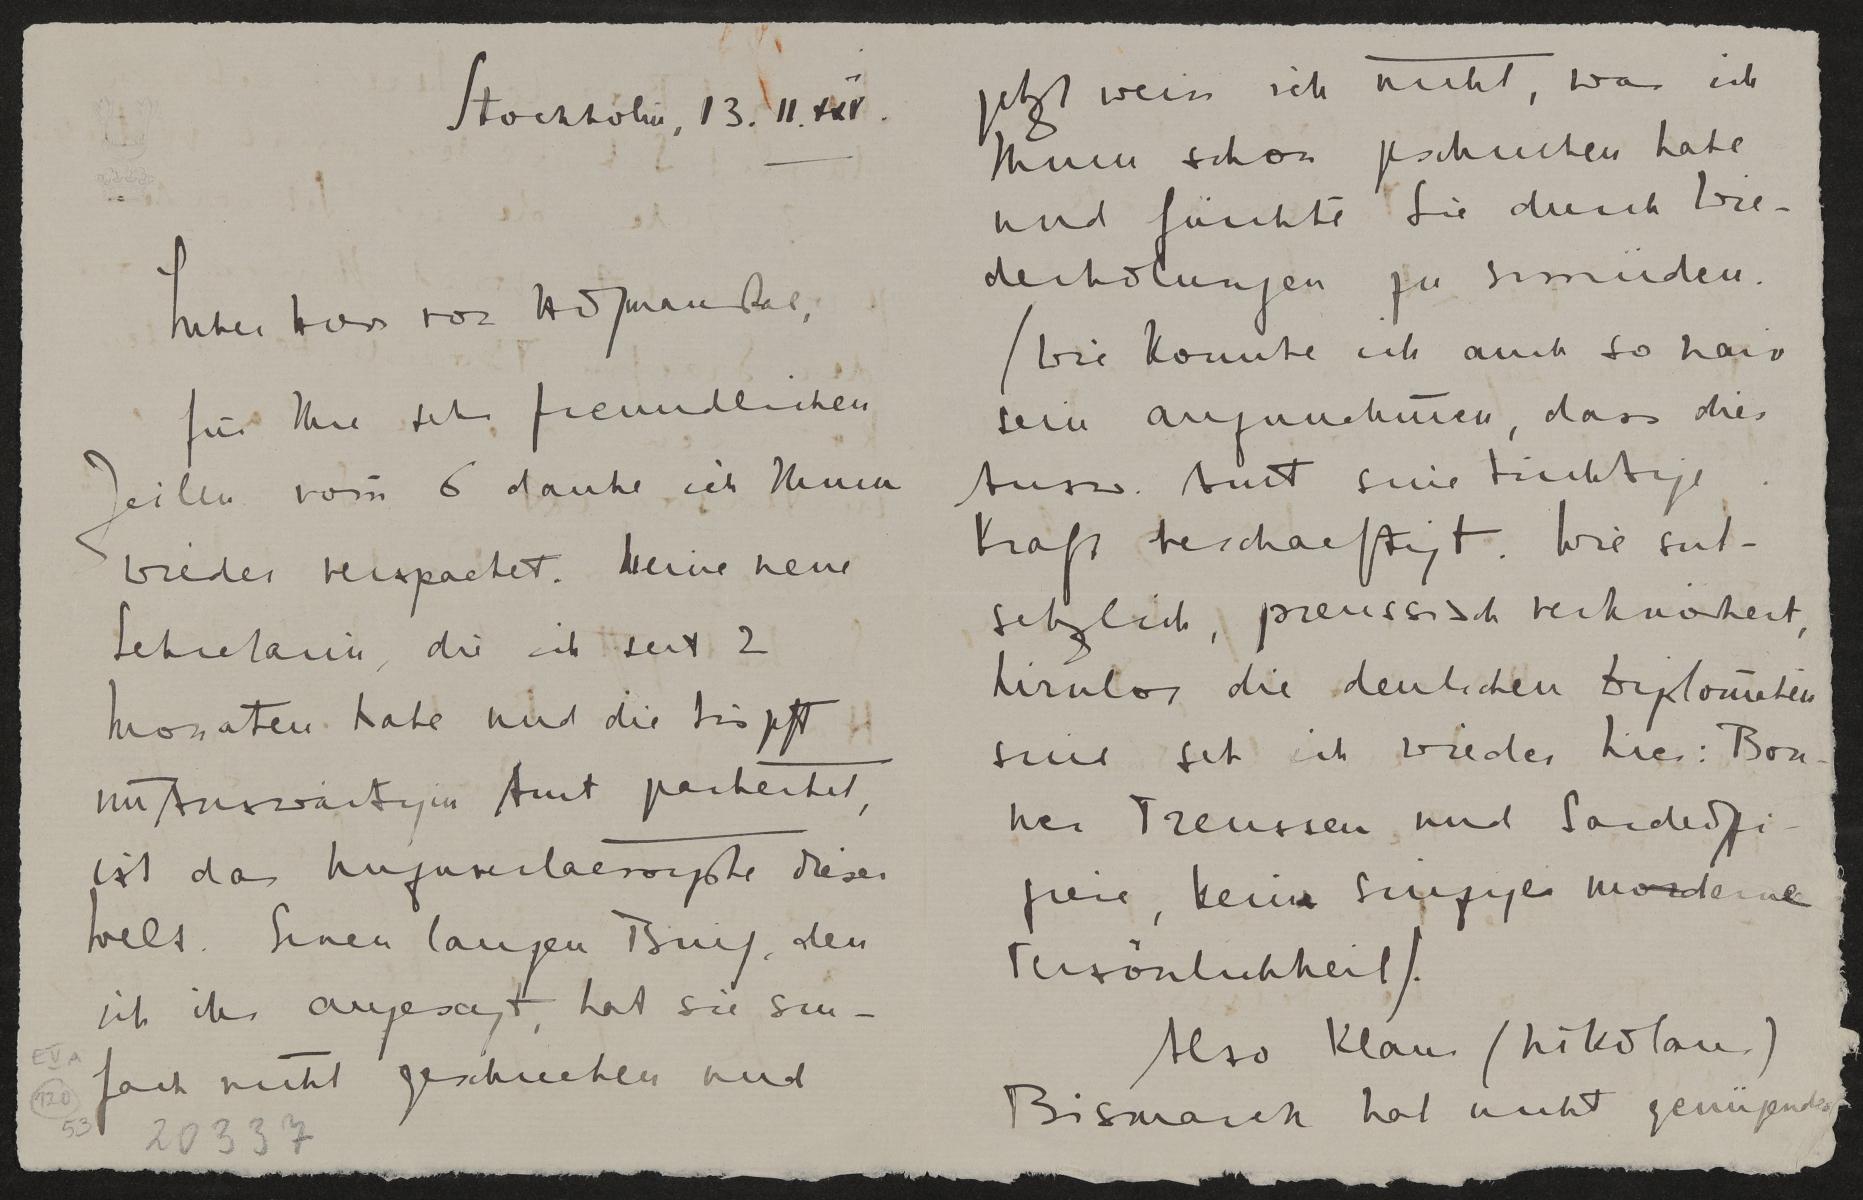 Stockholm, 13. II. XXV.
Lieber Herr von Hofmannsthal,
für Ihre sehr freundlichen
Zeilen vom 6 danke ich Ihnen
wieder verspaetet. Meine neue
Sekretärin, die ich seit 2
Monaten habe und die
im Auswärtigen Amt gearbeitet,
ist das Unzuverlaessigste dieser
Welt. Einen langen Brief, den
ich ihr angesagt, hat sie ein-
fach nicht geschrieben und
EVA
120
53
20337
jetzt weiss ich nicht, was ich
Ihnen schon geschrieben habe
und fürchte Sie durch Wie-
derholungen zu ermüden.
(Wie konnte ich auch so naiv
sein anzunehmen, dass das
Ausw. Amt eine tüchtige
Kraft beschaeftigt. Wie ent-
setzlich, preussisch verknöchert,
hirnlos die deutschen Diplomaten
sind seh ich wieder hier: Bon-
ner Preussen und Gardeoffi-
ziere, keine einzige moderne
Persönlichkeit).
Also Klaus (Nikolaus)
Bismarck hat nicht genügendes